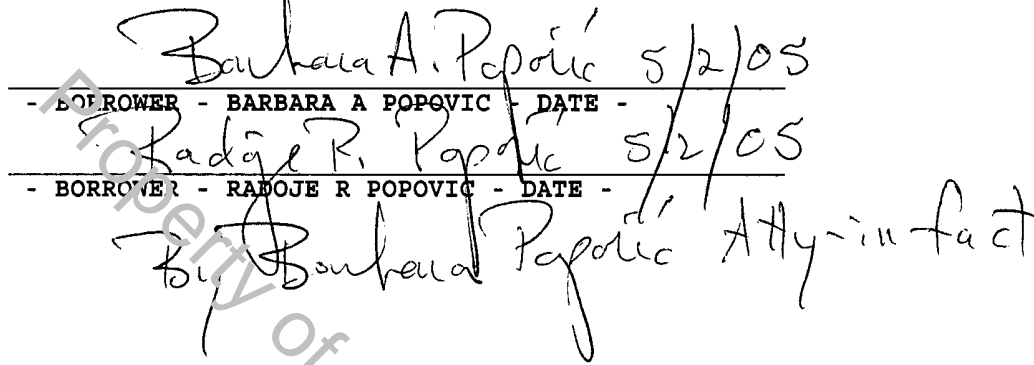 Barbara A. Popovic 5/2/05
- BORROWER - BARBARA A POPOVIC - DATE -
Radoje R. Popovic 5/2/05
- BORROWER - RADOJE R POPOVIC - DATE -
By Barbara Popovic Atty-in-fact
Property of